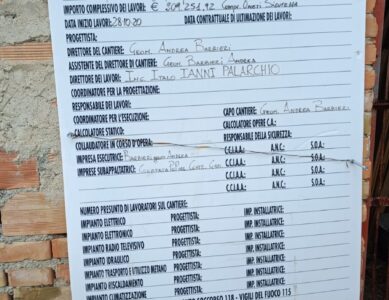 IMPORTO COMPLESSIVO DEI LAVORI: € 209.251,92 Compr. Oneri Sicurezza
DATA INIZIO LAVORI: 28.10.20 DATA CONTRATTUALE DI ULTIMAZIONE DEI LAVORI:
PROGETTISTA:
DIRETTORE DEL CANTIERE: Geom. Andrea Barbieri
ASSISTENTE DEL DIRETTORE DI CANTIERE: Geom. Barbieri Andrea
DIRETTORE DEI LAVORI: Ing. Italo IANNI PALARCHIO
COORDINATORE PER LA PROGETTAZIONE:
RESPONSABILE DEI LAVORI:
COORDINATORE PER L'ESECUZIONE: CAPO CANTIERE: Geom. Andrea Barbieri
CALCOLATORE STATICO: CALCOLATORE OPERE C.A.:
COLLAUDATORE IN CORSO D'OPERA: RESPONSABILE DELLA SICUREZZA:
IMPRESA ESECUTRICE: Barbieri geom Andrea C.C.I.A.A.: A.N.C.: S.O.A.:
IMPRESE SUBAPPALTATRICI: C.C.I.A.A.: A.N.C.: S.O.A.:
C.C.I.A.A.: A.N.C.: S.O.A.:
NUMERO PRESUNTO DI LAVORATORI SUL CANTIERE:
IMPIANTO ELETTRICO PROGETTISTA: IMP. INSTALLATRICE:
IMPIANTO ELETTRONICO PROGETTISTA: IMP. INSTALLATRICE:
IMPIANTO RADIO TELEVISIVO PROGETTISTA: IMP. INSTALLATRICE:
IMPIANTO IDRAULICO PROGETTISTA: IMP. INSTALLATRICE:
IMPIANTO TRASPORTO E UTILIZZO METANO PROGETTISTA: IMP. INSTALLATRICE:
IMPIANTO RISCALDAMENTO PROGETTISTA: IMP. INSTALLATRICE:
IMPIANTO CLIMATIZZAZIONE PROGETTISTA: IMP. INSTALLATRICE:
SOCCORSO 118 - VIGILI DEL FUOCO 115